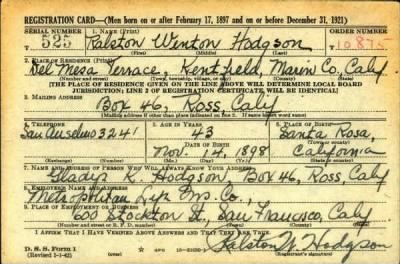 REGISTRATION CARD—(Men born on or after February 17, 1897 and on or before December 31, 1921)
SERIAL NUMBER 1. NAME (Print) ORDER NUMBER
525 Ralston Winton Hodgson 10875
(First) (Middle) (Last)
2. PLACE OF RESIDENCE (Print)
Del Mesa Terrace, Kentfield, Marin Co., Calif
(Number and street) (Town, township, village, or city) (County) (State)
[THE PLACE OF RESIDENCE GIVEN ON THE LINE ABOVE WILL DETERMINE LOCAL BOARD
JURISDICTION; LINE 2 OF REGISTRATION CERTIFICATE WILL BE IDENTICAL]
3. MAILING ADDRESS
Box 46, Ross, Calif
[Mailing address if other than place indicated on line 2. If same insert word same]
4. TELEPHONE 5. AGE IN YEARS 6. PLACE OF BIRTH
San Anselmo 3241 43 Santa Rosa,
DATE OF BIRTH (Town or county)
Nov. 14, 1898 California
(Exchange) (Number) (Mo.) (Day) (Yr.) (State or country)
7. NAME AND ADDRESS OF PERSON WHO WILL ALWAYS KNOW YOUR ADDRESS
Gladys K. Hodgson Box 46, Ross, Calif
8. EMPLOYER'S NAME AND ADDRESS
Metropolitan Life Ins. Co.,
9. PLACE OF EMPLOYMENT OR BUSINESS
600 Stockton St., San Francisco, Calif
(Number and street or R. F. D. number) (Town) (County) (State)
I AFFIRM THAT I HAVE VERIFIED ABOVE ANSWERS AND THAT THEY ARE TRUE.
D. S. S. Form 1
(Revised 1-1-42) Ralston W. Hodgson